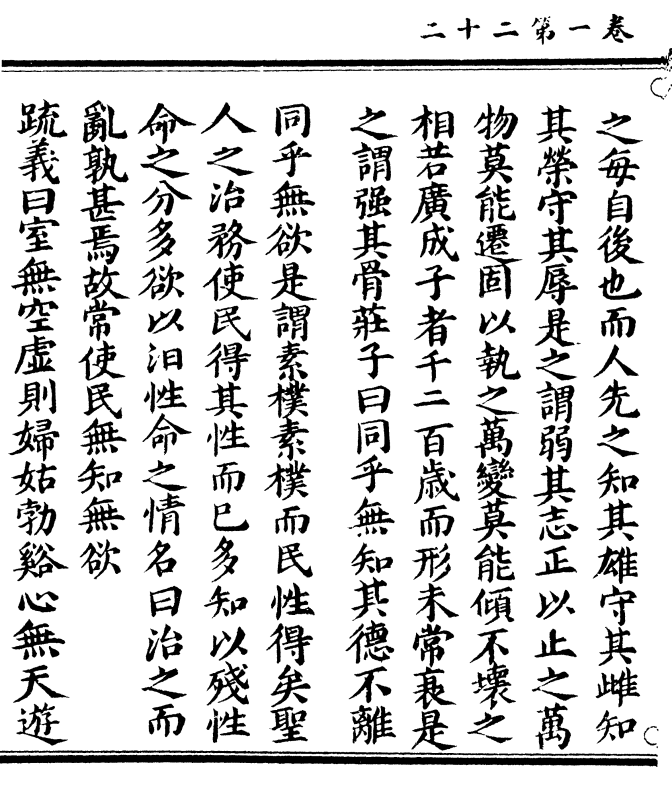 卷一第二十二
之每自後也而人先之知其雄守其雌知
其榮守其辱是之謂弱其志正以止之萬
物莫能遷固以執之萬變莫能傾不壞之
相若廣成子者千二百歳而形未常衰是
之謂强其骨莊子曰同乎無知其德不離
同乎無欲是謂素樸素樸而民性得矣聖
人之治務使民得其性而已多知以殘性
命之分多欲以汩性命之情名曰治之而
亂孰甚焉故常使民無知無欲
疏義曰室無空虛則婦姑勃谿心無天遊